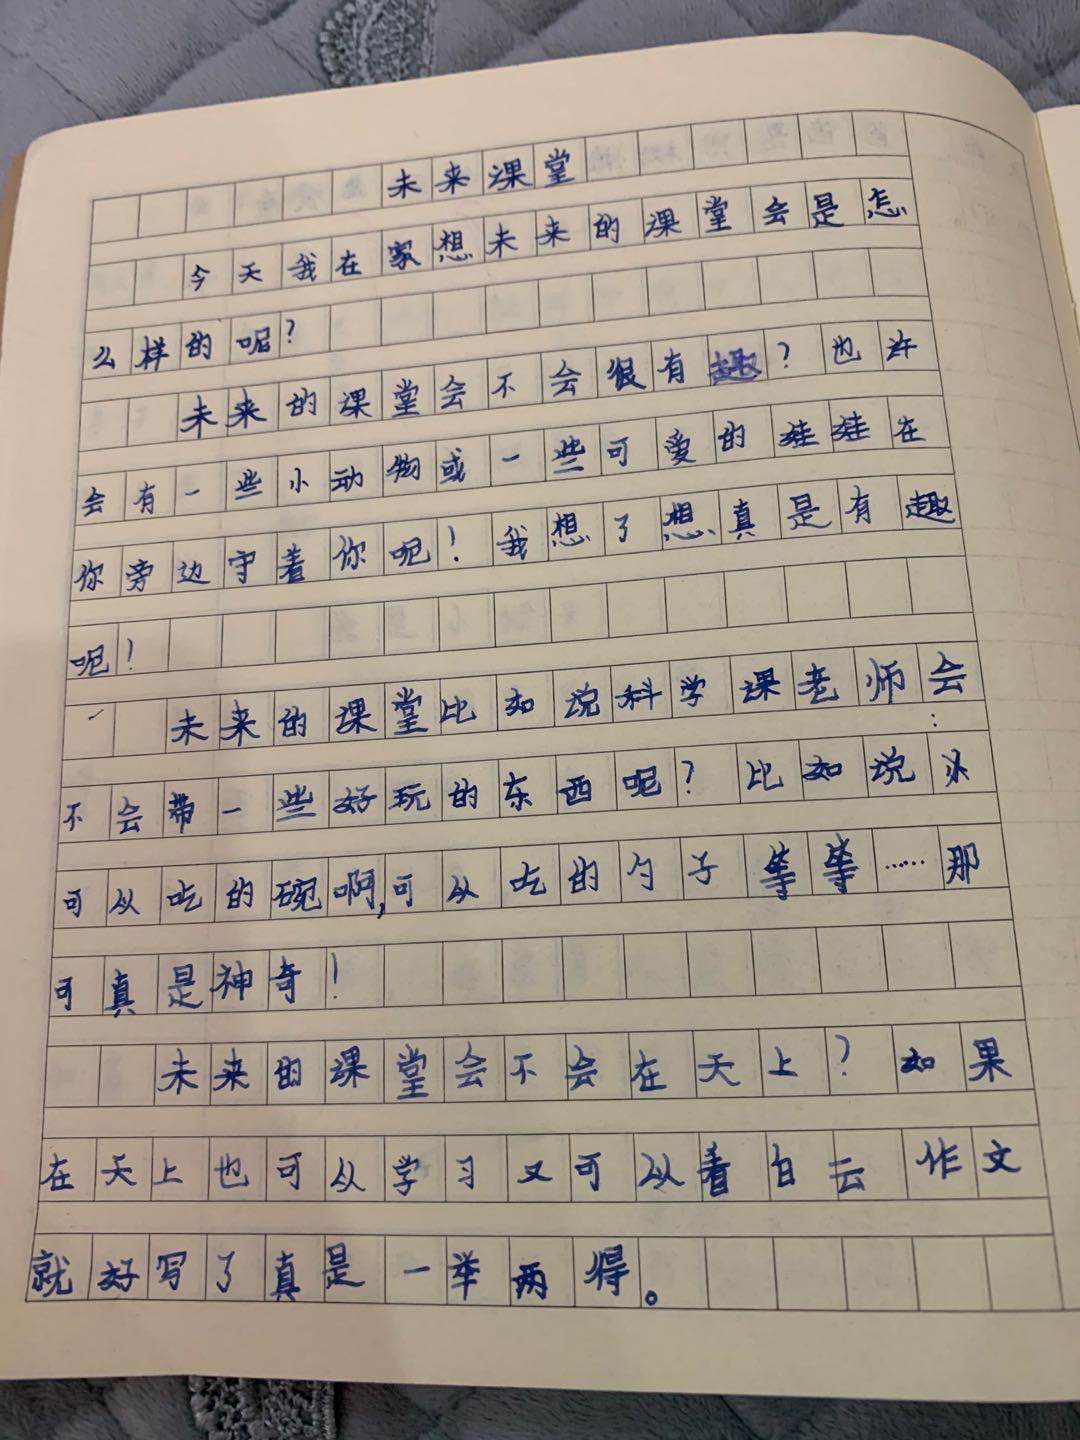 未来课堂
今天我在家想未来的课堂会是怎
么样的呢？
未来的课堂会不会很有趣？也许
会有一些小动物或一些可爱的娃娃在
你旁边守着你呢！我想了想真是有趣
呢！
未来的课堂比如说科学课老师会
不会带一些好玩的东西呢？比如说
可以吃的碗啊,可以吃的勺子等等……那
可真是神奇！
未来的课堂会不会在天上？如果
在天上也可以学习又可以看白云作文
就好写了真是一举两得。